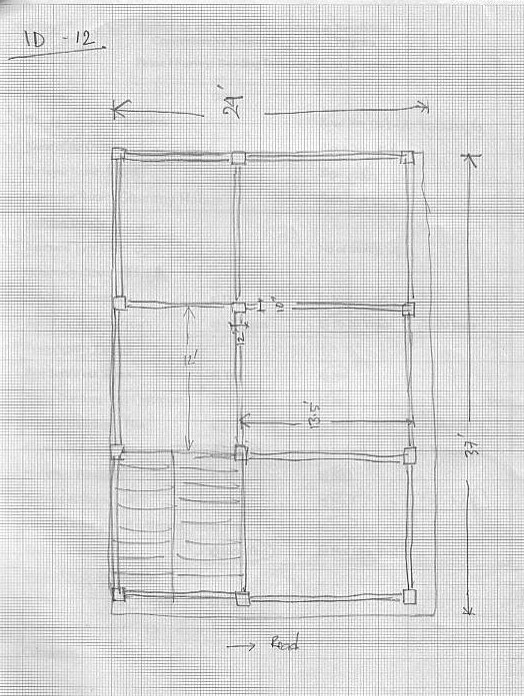 ID - 12
24'
10"
12"
11'
13.5'
37'
→ Road